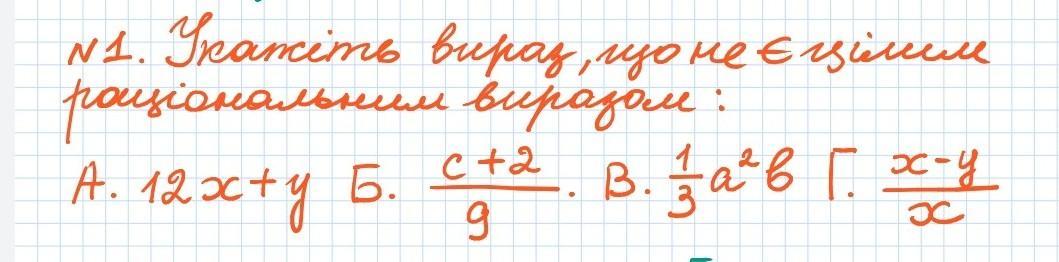 №1. Укажіть вираз, що не є цілим
раціональним виразом:
А. 12x+y Б. (c+2)/9. В. 1/3 a²b Г. (x-y)/x